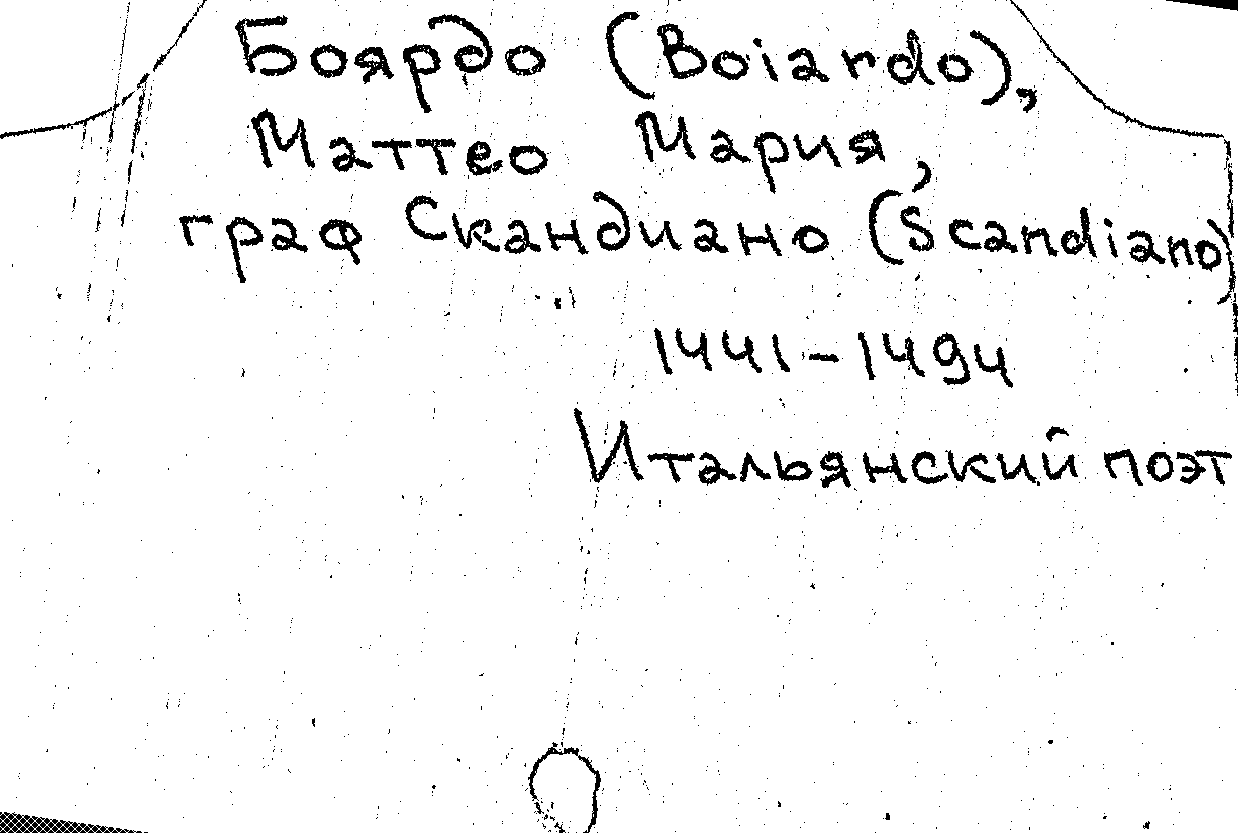 Боярдо (Boiardo),
Маттео Мария,
граф Скандиано (Scandiano)
1441–1494
Итальянский поэт